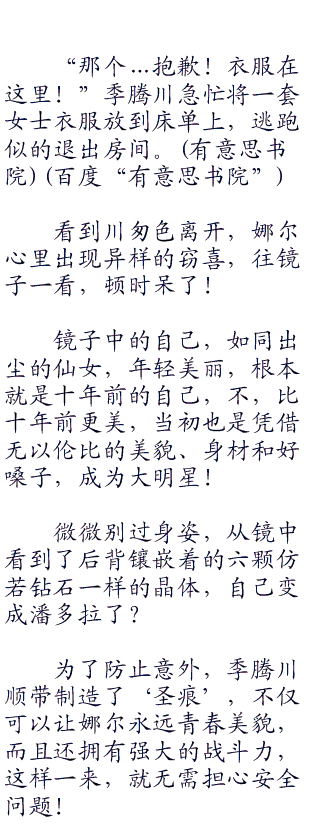 “那个…抱歉！衣服在
这里！”季腾川急忙将一套
女士衣服放到床单上，逃跑
似的退出房间。(有意思书
院)(百度“有意思书院”)
看到川匆色离开，娜尔
心里出现异样的窃喜，往镜
子一看，顿时呆了！
镜子中的自己，如同出
尘的仙女，年轻美丽，根本
就是十年前的自己，不，比
十年前更美，当初也是凭借
无以伦比的美貌、身材和好
嗓子，成为大明星！
微微别过身姿，从镜中
看到了后背镶嵌着的六颗仿
若钻石一样的晶体，自己变
成潘多拉了？
为了防止意外，季腾川
顺带制造了‘圣痕’，不仅
可以让娜尔永远青春美貌，
而且还拥有强大的战斗力，
这样一来，就无需担心安全
问题！